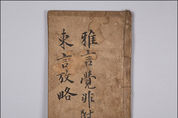 雅言覺非附
東言攷略